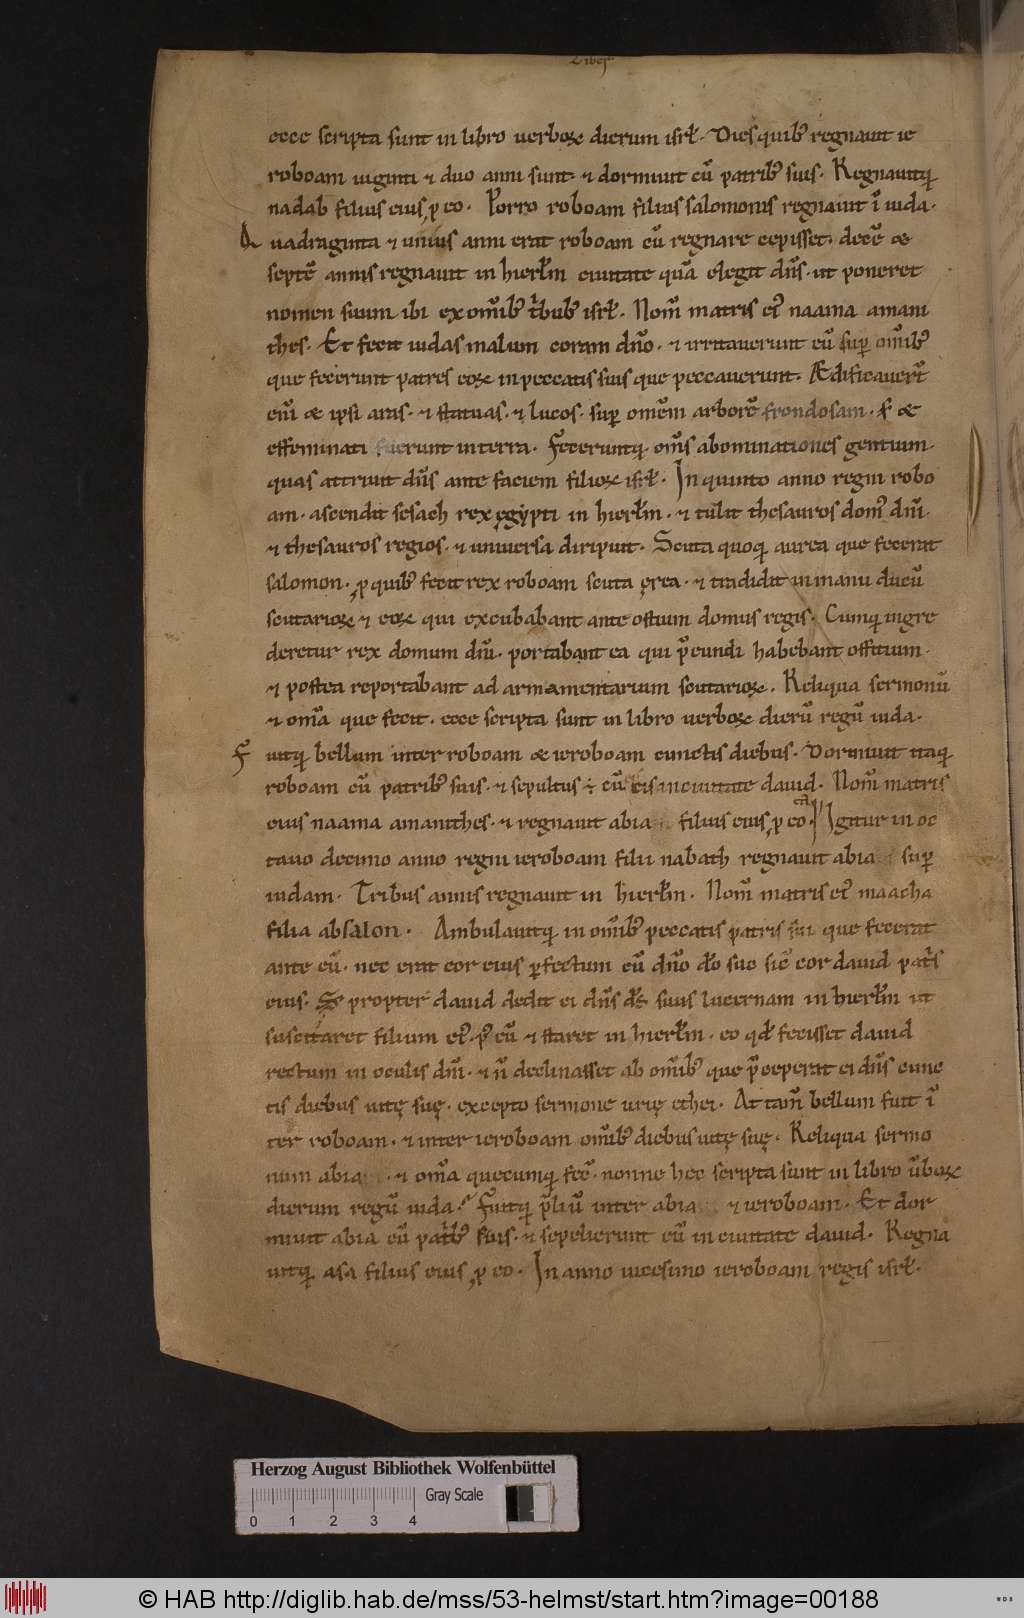 Liber
ecce scripta sunt in libro uerboꝝ dierum isrł. Dies quibꝰ regnauit ie
roboam uiginti ⁊ duo anni sunt. ⁊ dormiuit cū patribꝰ suis. Regnauitq;
nadab filius eius ꝓ eo. Porro roboam filius salomonis regnauit ī iuda.
Quadraginta ⁊ unius anni erat roboam cū regnare cepisset. decē &
septē annis regnauit in hierłm ciuitate quā elegit dn̄s. ut poneret
nomen suum ibi ex om̄ibꝰ tͥbubꝰ isrł. Nom̄ matris eiꝰ naama amani
thes. Et fecit iudas malum coram dn̄o. ⁊ irritauerunt eū sup̄ om̄ibꝰ
que fecerunt patres eoꝝ in peccatis suis que peccauerunt. Ædificauer̄t
enī & ipsi aras. ⁊ statuas. ⁊ lucos. sup̄ omēm arborē frondosam. S; &
effeminati fuerunt in terra. Feceruntq; om̄s abominationes gentium.
quas attriuit dn̄s ante faciem filioꝝ isrł. In quinto anno regni robo
am. ascendit sesach rex ęgypti in hierłm. ⁊ tulit thesauros domꝰ dn̄i.
⁊ thesauros regios. ⁊ uniuersa diripuit. Scuta quoq; aurea que fecerat
salomon. ꝓ quibꝰ fecit rex roboam scuta ęrea. ⁊ tradidit in manu ducū
scutarioꝝ ⁊ eoꝝ qui excubabant ante ostium domus regis. Cumq; ingre
deretur rex domum dn̄i. portabant ea qui p̄eundi habebant offitium.
⁊ postea reportabant ad armamentarium scutarioꝝ. Reliqua sermonū
⁊ om̄a que fecit. ecce scripta sunt in libro uerboꝝ dierū regū iuda.
Fuitq; bellum inter roboam & ieroboam cunctis diebus. Dormiuit itaq;
roboam cū patribꝰ suis. ⁊ sepultus ÷ cū eis in ciuitate dauid. Nom̄ matris
eius naama amanithes. ⁊ regnauit abia filius eius ꝓ eo. Igitur in oc
tauo decimo anno regni ieroboam filii nabath regnauit abia sup̄
iudam. Tribus annis regnauit in hierłm. Nom̄ matris eiꝰ maacha
filia absalon. Ambulauitq; in om̄ibꝰ peccatis patris sui que fecerat
ante eū. nec erat cor eius ꝑfectum cū dn̄o dō suo sic̄ cor dauid patͥs
eius. S; propter dauid dedit ei dn̄s ds̄ suus lucernam in hierłm ut
suscitaret filium eiꝰ. p̄ eū ⁊ staret in hierłm. eo qđ fecisset dauid
rectum in oculis dn̄i. ⁊ n̄ declinasset ab om̄ibꝰ que p̄ceperat ei dn̄s cunc
tis diebus uitę suę. excepto sermone urię ethei. At tam̄ bellum fuit ī
ter roboam. ⁊ inter ieroboam om̄ibꝰ diebus uitę suę. Reliqua sermo
num abia . ⁊ om̄a quecumq; fec̄. nonne hec scripta sunt in libro ūboꝝ
dierum regū iuda. Fuitq; p̄liū inter abia ⁊ ieroboam. Et dor
miuit abia cū patͥbꝰ suis. ⁊ sepelierunt eū in ciuitate dauid. Regna
uitq; asa filius eius ꝓ eo. In anno uicesimo ieroboam regis isrł.
Herzog August Bibliothek Wolfenbüttel
Gray Scale
0 1 2 3 4
© HAB http://diglib.hab.de/mss/53-helmst/start.htm?image=00188